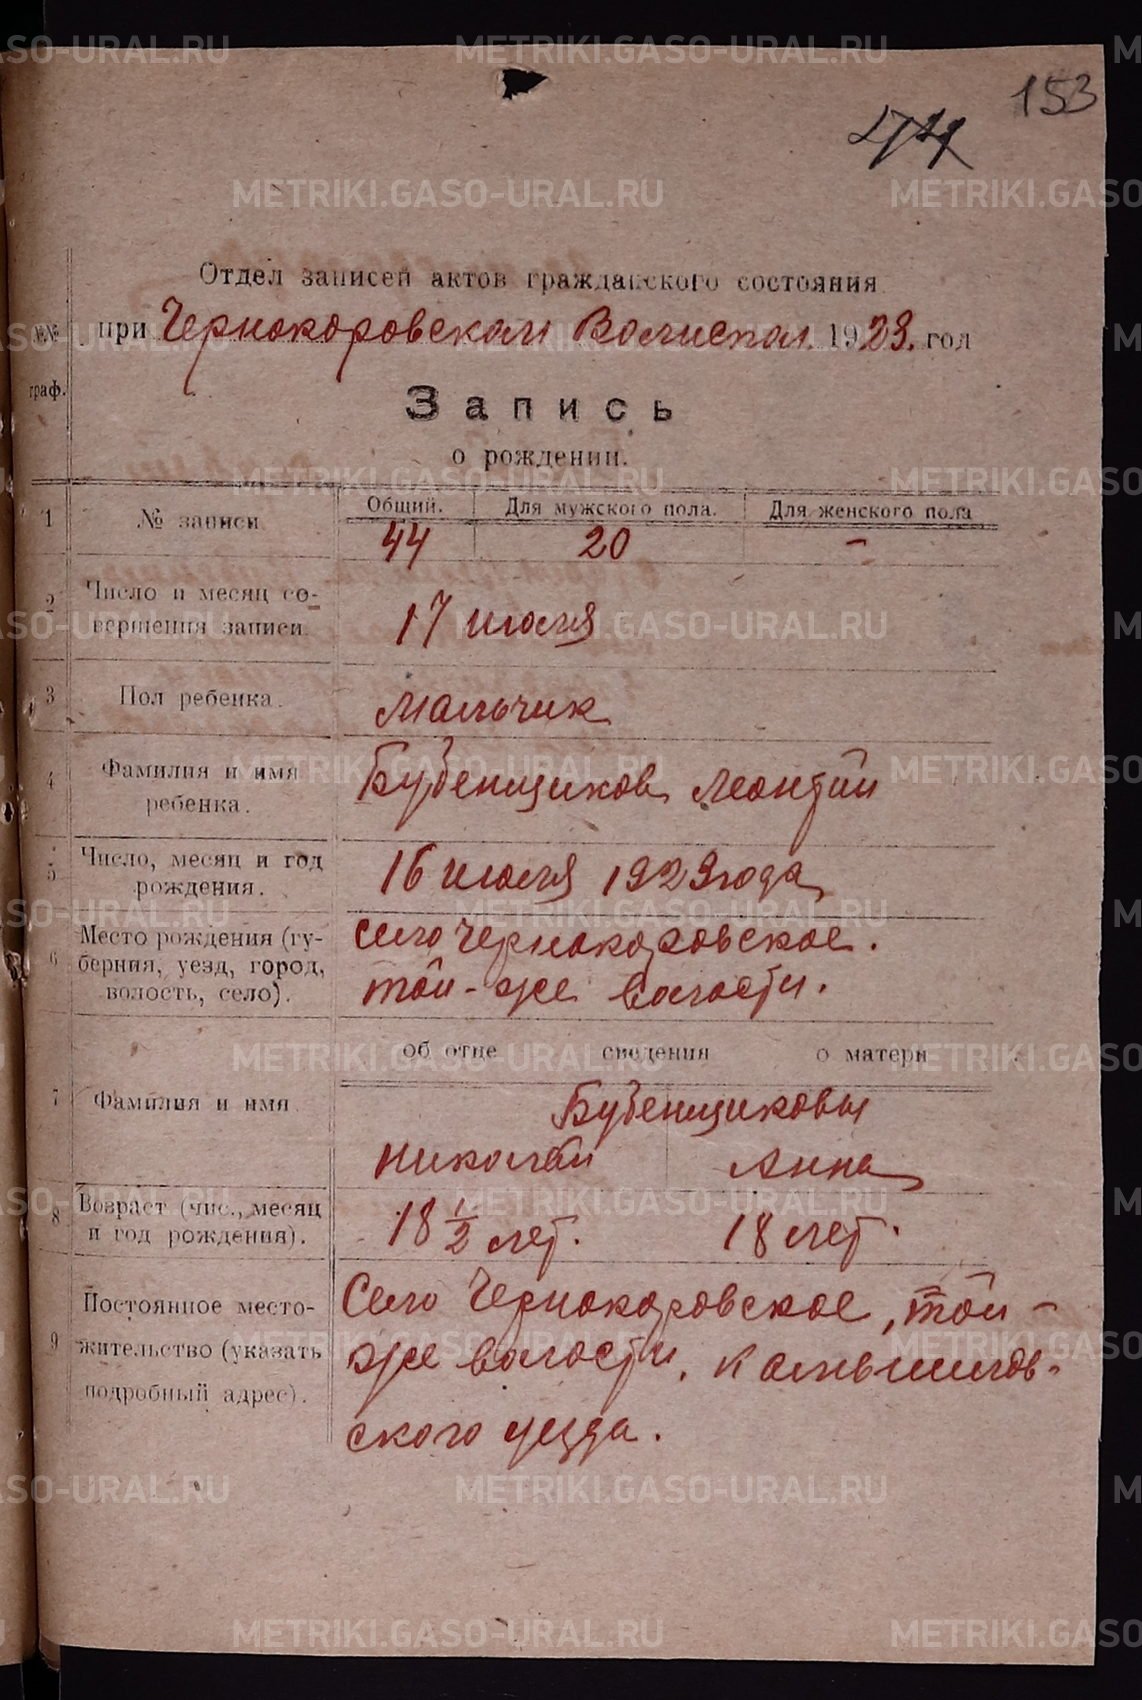 153
44
Отдел записей актов гражданского состояния
при Чернокоровском Волисполк. 1923. год
№№
граф.
Запись
о рождении.
1 № записи Общий. Для мужского пола. Для женского пола
44 20 -
2 Число и месяц со-
вершения записи. 17 июля
3 Пол ребенка. Мальчик
4 Фамилия и имя
ребенка. Бубенщиков Леонтий
5 Число, месяц и год
рождения. 16 июля 1923 года
6 Место рождения (гу-
берния, уезд, город,
волость, село). Село Чернокоровское.
той-же волости.
об отце сведения о матери
7 Фамилия и имя Бубенщиковы
Николай Анна
8 Возраст (чис., месяц
и год рождения). 18 1/2 лет. 18 лет.
9 Постоянное место-
жительство (указать
подробный адрес). Село Чернокоровское, той-
же волости, Камышлов-
ского уезда.
METRIKI.GASO-URAL.RU